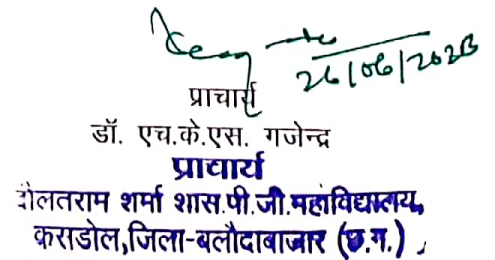 26/06/2023
प्राचार्य
डॉ. एच.के.एस. गजेन्द्र
प्राचार्य
दौलतराम शर्मा शास.पी.जी.महाविद्यालय,
कसडोल,जिला-बलौदाबाजार (छ.ग.)